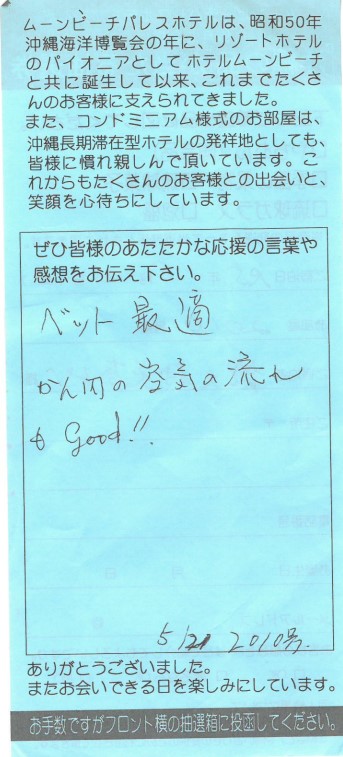 ムーンビーチパレスホテルは、昭和50年
沖縄海洋博覧会の年に、リゾートホテル
のパイオニアとしてホテルムーンビーチ
と共に誕生して以来、これまでたくさ
んのお客様に支えられてきました。
また、コンドミニアム様式のお部屋は、
沖縄長期滞在型ホテルの発祥地としても、
皆様に慣れ親しんで頂いています。こ
れからもたくさんのお客様との出会いと、
笑顔を心待ちにしています。
ぜひ皆様のあたたかな応援の言葉や
感想をお伝え下さい。
ベット 最適
かん内の空気の流れ
も Good!!
5/21 2010号.
ありがとうございました。
またお会いできる日を楽しみにしています。
お手数ですがフロント横の抽選箱に投函してください。